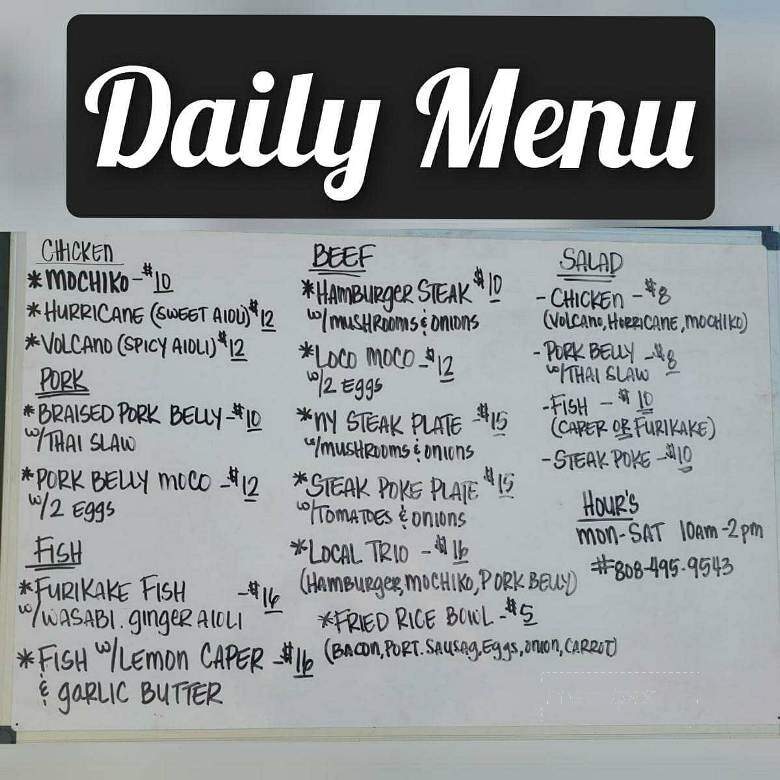 Daily Menu
CHICKEN
*MOCHIKO - $10
*HURRICANE (SWEET AIOLI) $12
*VOLCANO (SPICY AIOLI) $12
PORK
*BRAISED PORK BELLY - $10
W/THAI SLAW
*PORK BELLY MOCO - $12
W/2 EGGS
FISH
*FURIKAKE FISH - $16
W/WASABI. GINGER AIOLI
*FISH W/LEMON CAPER - $16
& GARLIC BUTTER
BEEF
*HAMBURGER STEAK $10
W/MUSHROOMS & ONIONS
*LOCO MOCO - $12
W/2 EGGS
*NY STEAK PLATE - $15
W/MUSHROOMS & ONIONS
*STEAK POKE PLATE $15
W/TOMATOES & ONIONS
*LOCAL TRIO - $16
(HAMBURGER, MOCHIKO, PORK BELLY)
*FRIED RICE BOWL - $5
(BACON, PORT. SAUSAG, EGGS, ONION, CARROT)
SALAD
- CHICKEN - $8
(VOLCANO, HURRICANE, MOCHIKO)
- PORK BELLY - $8
W/THAI SLAW
- FISH - $10
(CAPER OR FURIKAKE)
- STEAK POKE - $10
HOUR'S
MON-SAT 10am-2pm
#808-495-9543